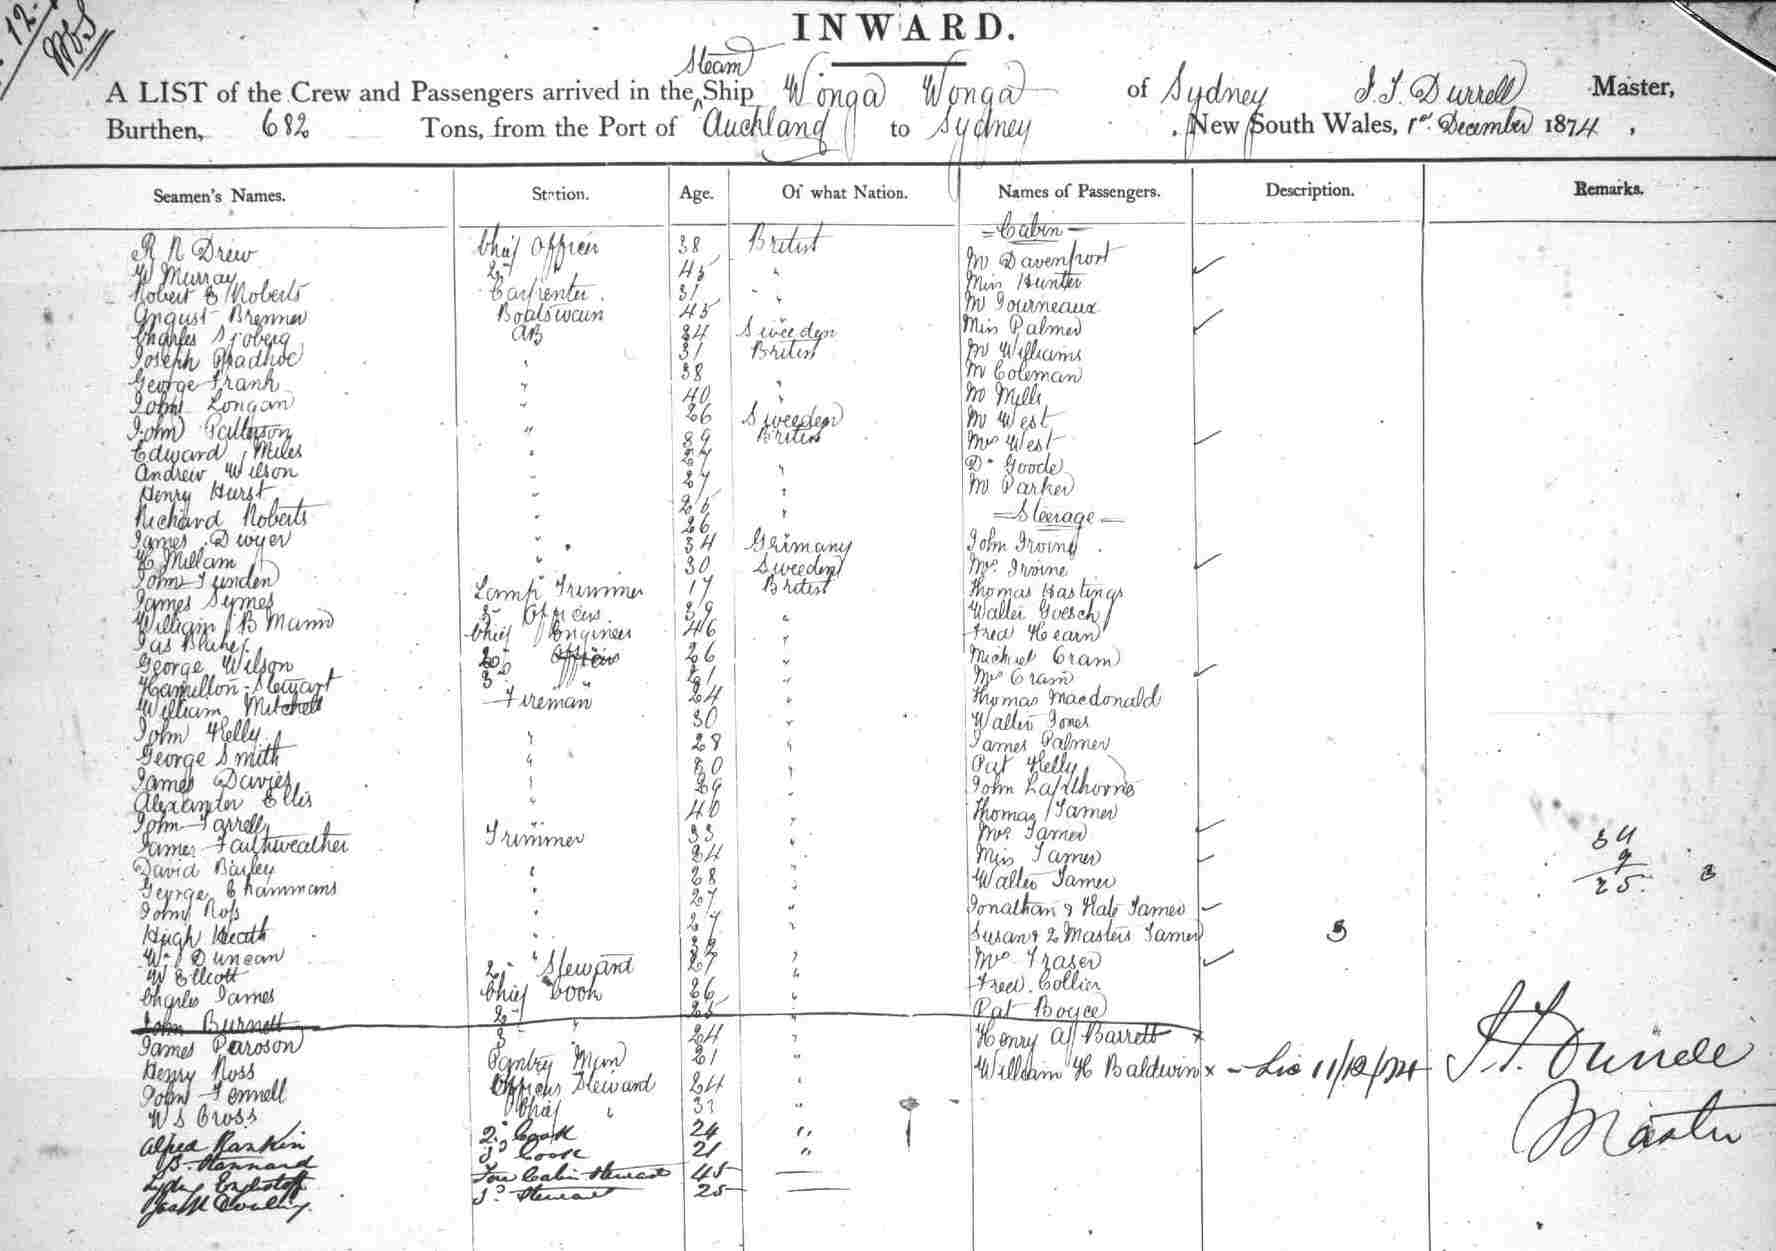 12.
INWARD.
Steam
A LIST of the Crew and Passengers arrived in the Ship Wonga Wonga of Sydney J. T. Durrell Master,
Burthen, 682 Tons, from the Port of Auckland to Sydney, New South Wales, 1st December 1874,
Seamen's Names. Station. Age. Of what Nation. Names of Passengers. Description. Remarks.
R N Drew Chief Officer 38 British
W Murray 2- " 45 "
Robert E Roberts Carpenter 31 "
August Brenner Boatswain 45 "
Charles Sjoberg AB 34 Sweeden
Joseph 31 British
George Frank " 38
John Longan " 40 "
John Patterson 26 Sweeden
Edward Miles " 39 British
Andrew Wilson " 27
Henry Hurst " 27 "
Richard Roberts " 25 "
James Dwyer " 26 "
Millam " 34 Germany
John Lunden " 30 Sweeden
James Symes Lamp Trimmer 17 British
William B Mann 3- Officer 39 "
Jas Chief Engineer 46 "
George Wilson 2- 26 "
Hamilton Stewart 3 " 21 "
William Mitchell Fireman 24 "
John Kelly 30 "
George Smith " 28 "
James Davies " 30 "
Alexander Ellis " 29
John Farrelly " 40 "
James Faithweather Trimmer 33 "
David Bailey 34 "
George Chammans " 28 "
John Ross " 27 "
Hugh Heath " 27 "
W Duncan " 32 "
W Ellcott 2- Steward 27 "
Charles James Chief Cook 26 "
John Burnett 2- " 25 "
James Paroson 3- 24
Henry Ross Pantry Man 21 "
John Fennell Officers Steward 24
W S Cross Chief " 31 "
Alfred Rankin 2- Cook 24 "
B. Hannard 3- Cook 21 "
Fore Cabin Stewardess 45
3- Steward 25
— Cabin —
Mr Davenport
Miss Hunter
Mr Fourneaux
Miss Palmer
Mr Williams
Mr Coleman
Mr Mills
Mr West
Mrs West
Dr Goode
Mr Parker
— Steerage —
John Irvine
Mrs Irvine
Thomas Hastings
Walter Goesch
Fred Hearn
Michael Cram
Mrs Cram
Thomas Macdonald
Walter Jones
James Palmer
Pat Kelly
John Laxthorne
Thomas Tamer
Mrs Tamer
Miss Tamer
Walter Tamer
Jonathan & Kate Tamer
Susan & 2 Masters Tamer 3
Mrs Fraser
Fred. Collier
Pat Boyce
Henry A Barrett x
William H Baldwin x
34
9
25 3
J. T. Durrell
Master